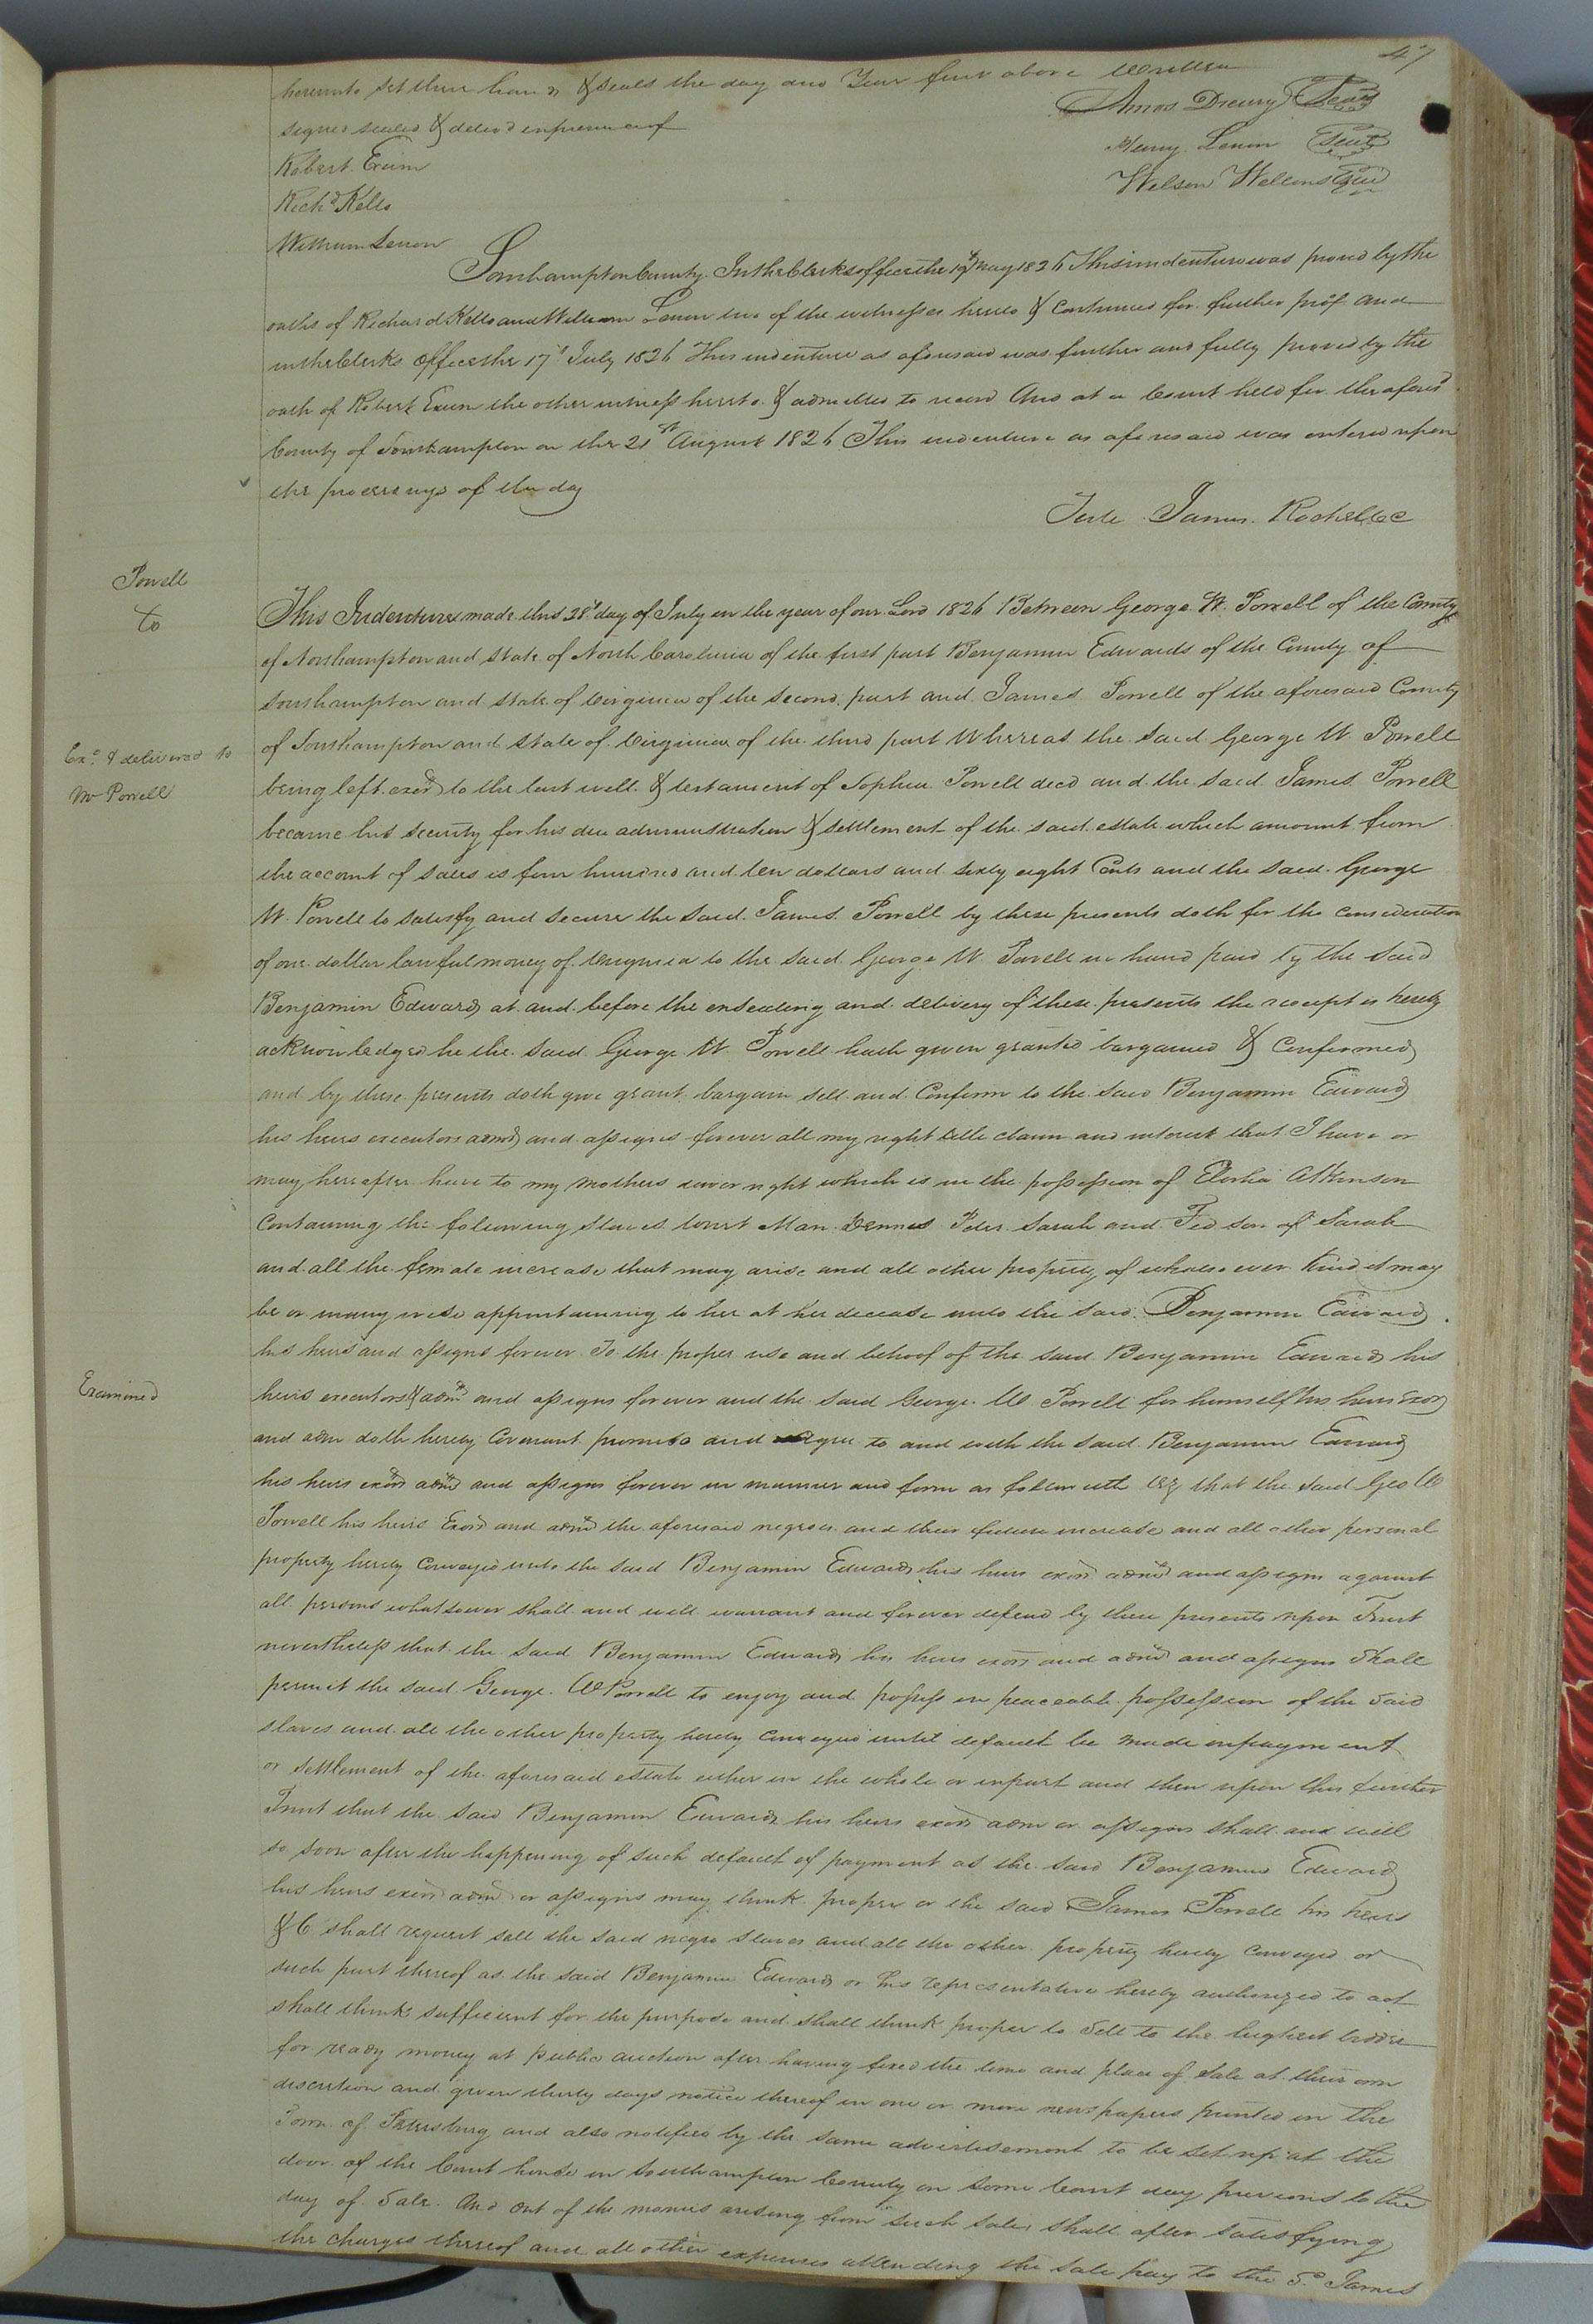 47
hereunto set their hands & seals the day and Year first above Written
Amos Drewry Seal
signed sealed & deliv'd in presence of
Henry Lenow Seal
Robert Exum
Wilson Wellons Seal
Rich'd Kello
William Lenow
Southampton County. In the Clerks office the 19th May 1826 This indenture was proved by the
oaths of Richard Kello and William Lenow two of the witnesses hereto & continued for further proof and
in the Clerks Office the 17th July 1826 This indenture as aforesaid was further and fully proved by the
oath of Robert Exum the other witness hereto & admitted to record And at a Court held for the afores'd
County of Southampton on the 21st August 1826 This indenture as aforesaid was entered upon
the proceedings of the day
Teste James Rochelle CC
Powell
to
This Indenture made this 28th day of July in the year of our Lord 1826 Between George W. Powell of the County
of Northampton and State of North Carolina of the first part Benjamin Edwards of the County of
Southampton and State of Virginia of the second part and James Powell of the aforesaid County
Ex'd & delivered to
Mr Powell
of Southampton and State of Virginia of the third part Whereas the said George W. Powell
being left exor to the last will & testament of Sophia Powell decd and the said James Powell
became his security for his due administration & settlement of the said estate which amount from
the account of sales is four hundred and ten dollars and sixty eight Cents and the said George
W. Powell to satisfy and secure the said James Powell by these presents doth for the consideration
of one dollar lawful money of Virginia to the said George W. Powell in hand paid by the said
Benjamin Edwards at and before the ensealing and delivery of these presents the receipt is hereby
acknowledged he the said George W. Powell hath given granted bargained & Confirmed
and by these presents doth give grant bargain sell and Confirm to the said Benjamin Edwards
his heirs executors adms and assigns forever all my right title claim and interest that I have or
may hereafter have to my mothers dower right which is in the possession of Atkinson
Containing the following slaves towit Man Dennis Peter Sarah and Fed son of Sarah
and all the female increase that may arise and all other property of whatsoever kind it may
be or in any wise appertaining to her at her decease unto the said Benjamin Edwards
his heirs and assigns forever To the proper use and behoof of the said Benjamin Edwards his
Examined
heirs executors & adms and assigns forever and the said George W Powell for himself his heirs exors
and adm doth hereby Covenant promise and agree to and with the said Benjamin Edwards
his heirs exors adms and assigns forever in manner and form as followeth viz that the said Geo W
Powell his heirs Exors and adms the aforesaid negroes and their future increase and all other personal
property hereby Conveyed unto the said Benjamin Edwards his heirs exors adms and assigns against
all persons whatsoever shall and will warrant and forever defend by these presents upon Trust
nevertheless that the said Benjamin Edwards his heirs exors and adms and assigns Shall
permit the said George W Powell to enjoy and possess in peaceable possession of the said
slaves and all the other property hereby Conveyed until default be made in payment
or settlement of the aforesaid estate either in the whole or in part and then upon this further
Trust that the said Benjamin Edwards his heirs exors adm or assigns shall and will
so soon after the happening of such default of payment as the said Benjamin Edwards
his heirs exors adms or assigns may think proper or the said James Powell his heirs
&C shall request sell the said negro slaves and all the other property hereby Conveyed or
such part thereof as the said Benjamin Edwards or his representative hereby authorized to act
shall think sufficient for the purpose and shall think proper to Sell to the highest bidder
for ready money at public auction after having fixed the time and place of Sale at their own
discretion and given thirty days notice thereof in one or more newspapers printed in the
Town of Petersburg and also notified by the same advertisement to be set up at the
door of the Court house in Southampton County on some Court day previous to the
day of Sale. And out of the monies arising from such sales shall after satisfying
the charges thereof and all other expenses attending the sale pay to the Sd James